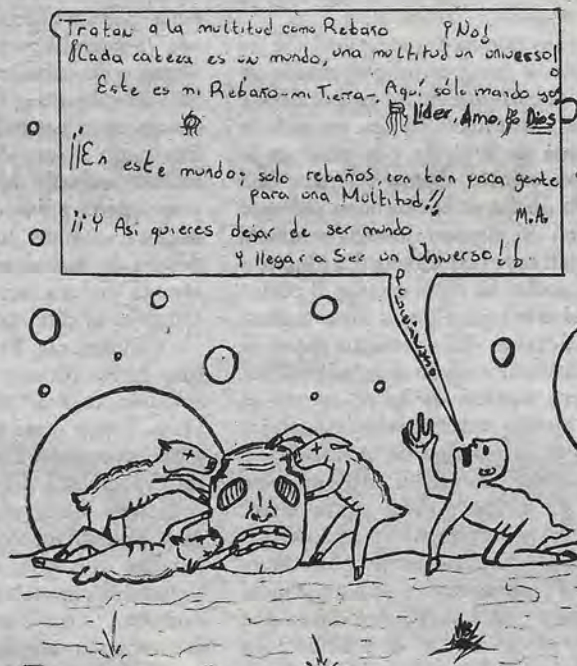 Tratan a la multitud como Rebaño ¡No!
¡Cada cabeza es un mundo, una multitud un universo!
Este es mi Rebaño-mi Tierra-. Aquí sólo mando yo
Lider, Amo, Dios
¡¡En este mundo; solo rebaños, con tan poca gente
para una Multitud!!
M.A.
¡¡Y Asi quieres dejar de ser mundo
y llegar a Ser un Universo!!